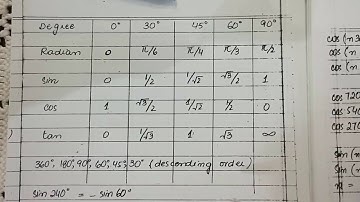 Degree 0° 30° 45° 60° 90°
Radian 0 π/6 π/4 π/3 π/2
sin 0 1/2 1/√2 √3/2 1
cos 1 √3/2 1/√2 1/2 0
tan 0 1/√3 1 √3 ∞
360°, 180°, 90°, 60°, 45°, 30° (desconding order)
sin 240° = - sin 60°
cos (n
cos (n
cos 720
cos 540
cos 270
sin (n
sin (n